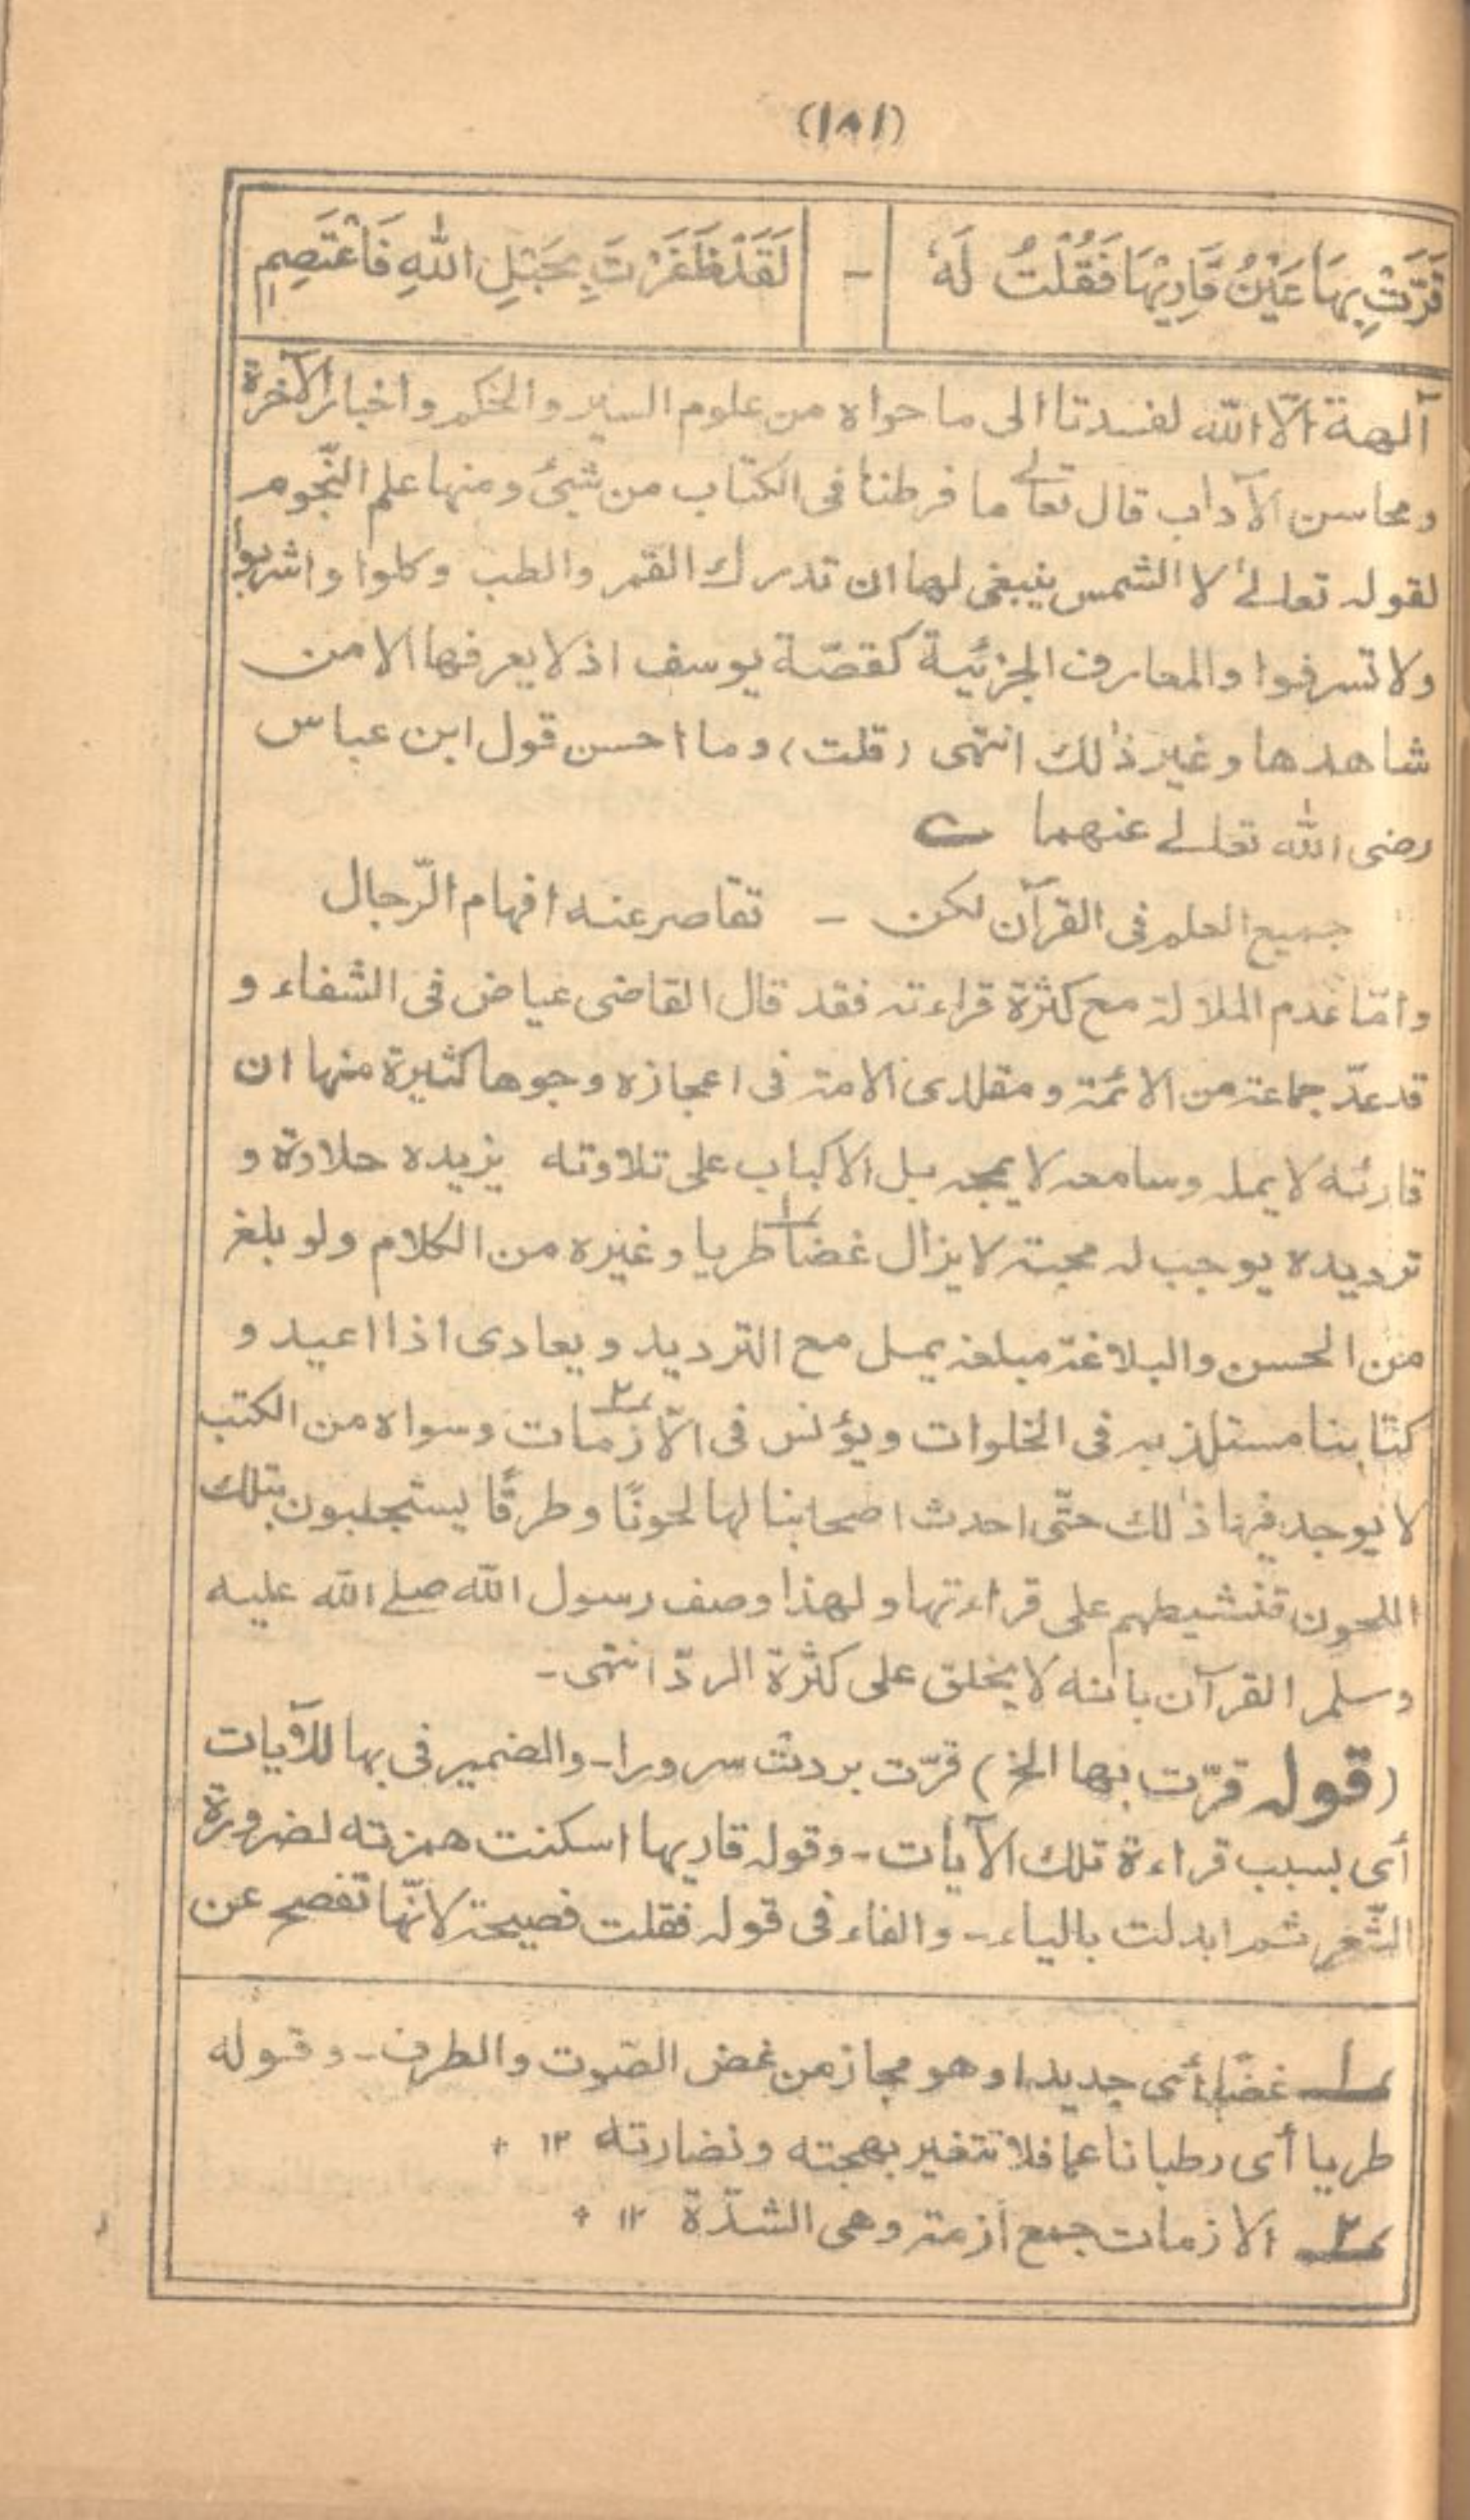 (١٨١)
قَرَّتْ بِهَا عَيْنُ قَارِيْهَا فَقُلْتُ لَهُ - لَقَدْ ظَفَرْتَ بِحَبْلِ اللهِ فَاعْتَصِمِ
آلهة الّا الله لفسدتا الى ما حواه من علوم السير والحكم واخبار الآخرة
ومحاسن الآداب قال تعالٰے ما فرطنا فى الكتاب من شىٔ ومنها علم النّجوم
لقوله تعالےٰ لا الشمس ينبغى لها ان تدرك القمر والطب وكلوا واشربوا
ولا تسرفوا والمعارف الجزئية كقصّة يوسف اذ لا يعرفها الا من
شاهدها وغير ذٰلك انتهى (قلت) وما احسن قول ابن عباس
رضى الله تعالے عنهما ؎
جميع العلم فى القرآن لكن - تقاصر عنه افهام الرّجال
وامّا عدم الملالة مع كثرة قراءته فقد قال القاضى عياض فى الشفاء و
قد عدّ جماعة من الائمّة ومقلدى الامة فى اعجازه وجوها كثيرة منها ان
قارئه لا يمله وسامعه لا يمجه بل الاكباب على تلاوته يزيده حلاوة و
ترديده يوجب له محبة لا يزال غضا١ طريا وغيره من الكلام ولو بلغ
من الحسن والبلاغة مبلغه يمل مع الترديد ويعادى اذا اعيد و
كتابنا مستلذ به فى الخلوات ويؤنس فى الآزمات٢ وسواه من الكتب
لا يوجد فيها ذٰلك حتّى احدث اصحابنا لها لحونًا وطرقًا يستجلبون بتلك
اللحون تنشيطهم على قراءتها ولهذا وصف رسول الله صلے الله عليه
وسلم القرآن بانه لا يخلق على كثرة الردّ انتهى -
(قوله قرّت بها الخ) قرّت بردت سرورا - والضمير فى بها للآيات
أى بسبب قراءة تلك الآيات - وقوله قاريها اسكنت همزته لضرورة
الشّعر ثم ابدلت بالياء - والفاء فى قوله فقلت فصيحة لانّها تفصح عن
١ غضًا أى جديدا وهو مجاز من غض الصّوت والطرف - وقوله
طريا أى رطبا ناعما فلا تتغير بهجته ونضارته ١٢ +
٢ الازمات جمع أزمة وهى الشدّة ١٢ +